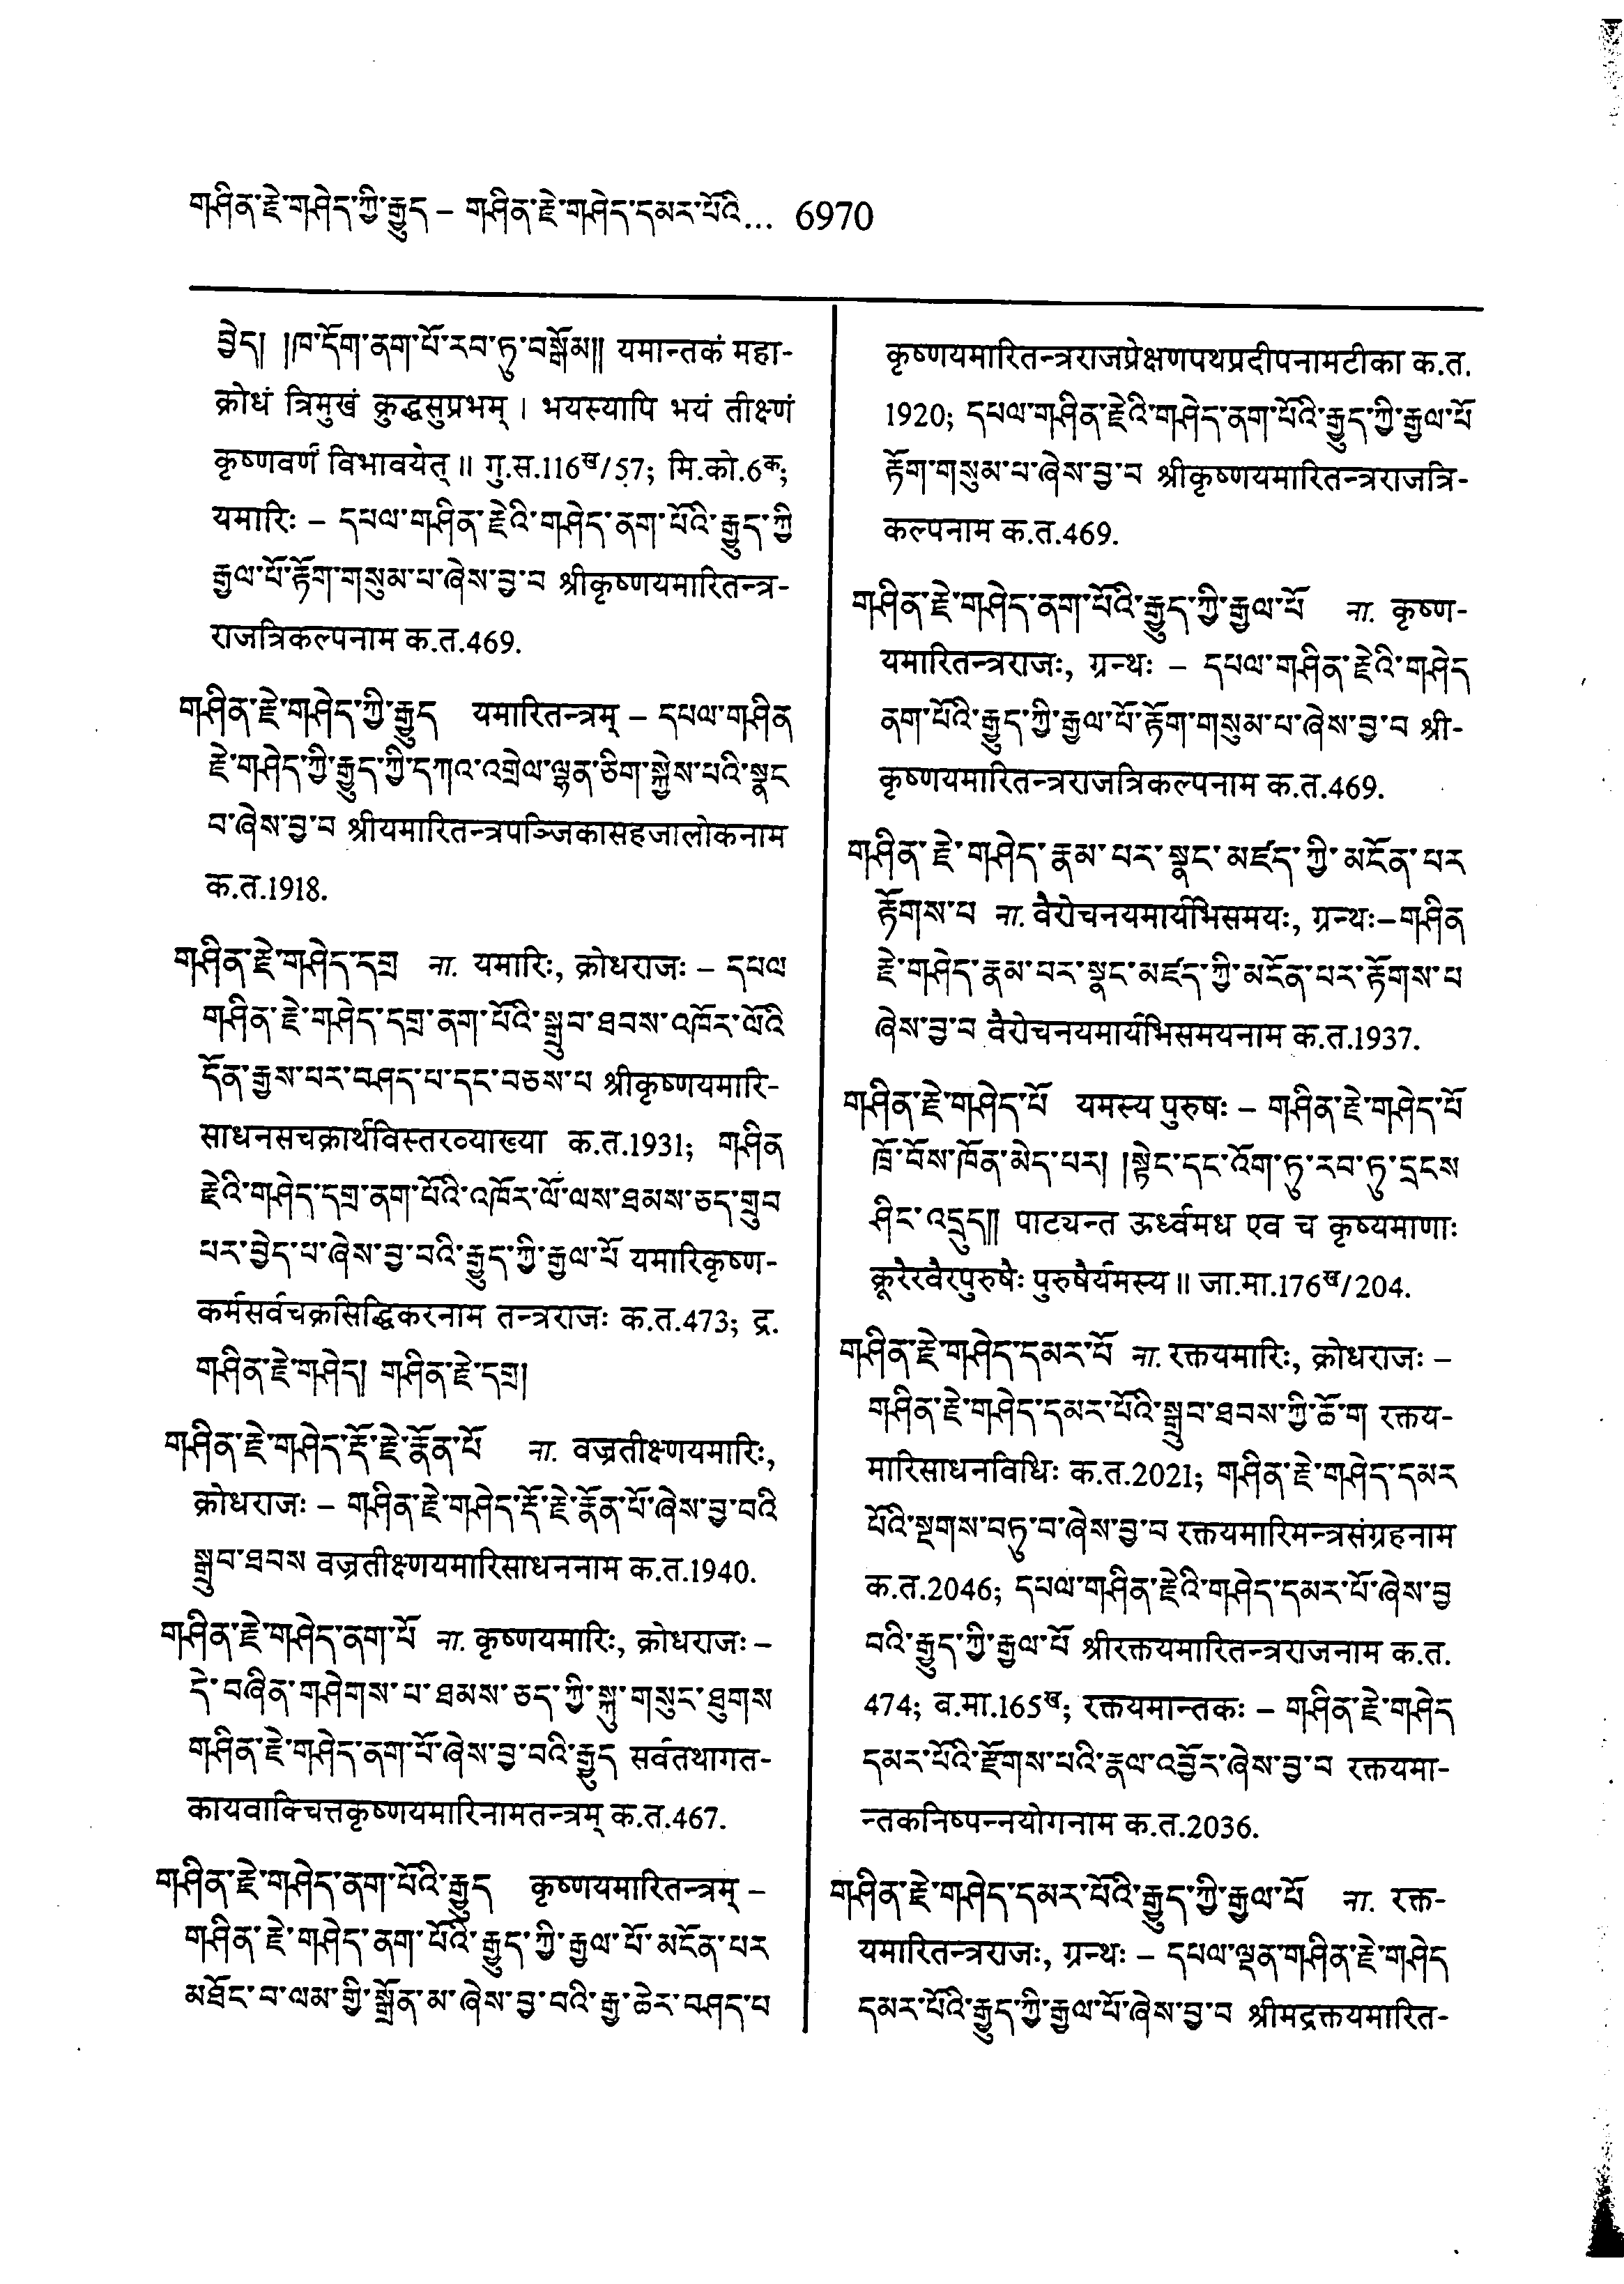 གཤིན་རྗེ་གཤེད་ཀྱི་རྒྱུད – གཤིན་རྗེ་གཤེད་དམར་པོའི... 6970
བྱེད། །ཁ་དོག་ནག་པོ་རབ་ཏུ་བསྒོམ།། यमान्तकं महा-
क्रोधं त्रिमुखं क्रुद्धसुप्रभम् । भयस्यापि भयं तीक्ष्णं
कृष्णवर्णं विभावयेत् ॥ गु.स.116ख/57; मि.को.6क;
यमारिः – དཔལ་གཤིན་རྗེའི་གཤེད་ནག་པོའི་རྒྱུད་ཀྱི
རྒྱལ་པོ་རྟོག་གསུམ་པ་ཞེས་བྱ་བ श्रीकृष्णयमारितन्त्र-
राजत्रिकल्पनाम क.त.469.
གཤིན་རྗེ་གཤེད་ཀྱི་རྒྱུད यमारितन्त्रम् – དཔལ་གཤིན
རྗེ་གཤེད་ཀྱི་རྒྱུད་ཀྱི་དཀའ་འགྲེལ་ལྷན་ཅིག་སྐྱེས་པའི་སྣང
བ་ཞེས་བྱ་བ श्रीयमारितन्त्रपञ्जिकासहजालोकनाम
क.त.1918.
གཤིན་རྗེ་གཤེད་དགྲ ना. यमारिः, क्रोधराजः – དཔལ
གཤིན་རྗེ་གཤེད་དགྲ་ནག་པོའི་སྒྲུབ་ཐབས་འཁོར་ལོའི
དོན་རྒྱས་པར་བཤད་པ་དང་བཅས་པ श्रीकृष्णयमारि-
साधनसचक्रार्थविस्तरव्याख्या क.त.1931; གཤིན
རྗེའི་གཤེད་དགྲ་ནག་པོའི་འཁོར་ལོ་ལས་ཐམས་ཅད་གྲུབ
པར་བྱེད་པ་ཞེས་བྱ་བའི་རྒྱུད་ཀྱི་རྒྱལ་པོ यमारिकृष्ण-
कर्मसर्वचक्रसिद्धिकरनाम तन्त्रराजः क.त.473; द्र.
གཤིན་རྗེ་གཤེད། གཤིན་རྗེ་དགྲ།
གཤིན་རྗེ་གཤེད་རྡོ་རྗེ་རྣོན་པོ ना. वज्रतीक्ष्णयमारिः,
क्रोधराजः – གཤིན་རྗེ་གཤེད་རྡོ་རྗེ་རྣོན་པོ་ཞེས་བྱ་བའི
སྒྲུབ་ཐབས वज्रतीक्ष्णयमारिसाधननाम क.त.1940.
གཤིན་རྗེ་གཤེད་ནག་པོ ना. कृष्णयमारिः, क्रोधराजः –
དེ་བཞིན་གཤེགས་པ་ཐམས་ཅད་ཀྱི་སྐུ་གསུང་ཐུགས
གཤིན་རྗེ་གཤེད་ནག་པོ་ཞེས་བྱ་བའི་རྒྱུད सर्वतथागत-
कायवाक्चित्तकृष्णयमारिनामतन्त्रम् क.त.467.
གཤིན་རྗེ་གཤེད་ནག་པོའི་རྒྱུད कृष्णयमारितन्त्रम् –
གཤིན་རྗེ་གཤེད་ནག་པོའི་རྒྱུད་ཀྱི་རྒྱལ་པོ་མངོན་པར
མཐོང་བ་ལམ་གྱི་སྒྲོན་མ་ཞེས་བྱ་བའི་རྒྱ་ཆེར་བཤད་པ
कृष्णयमारितन्त्रराजप्रेक्षणपथप्रदीपनामटीका क.त.
1920; དཔལ་གཤིན་རྗེའི་གཤེད་ནག་པོའི་རྒྱུད་ཀྱི་རྒྱལ་པོ
རྟོག་གསུམ་པ་ཞེས་བྱ་བ श्रीकृष्णयमारितन्त्रराजत्रि-
कल्पनाम क.त.469.
གཤིན་རྗེ་གཤེད་ནག་པོའི་རྒྱུད་ཀྱི་རྒྱལ་པོ ना. कृष्ण-
यमारितन्त्रराजः, ग्रन्थः – དཔལ་གཤིན་རྗེའི་གཤེད
ནག་པོའི་རྒྱུད་ཀྱི་རྒྱལ་པོ་རྟོག་གསུམ་པ་ཞེས་བྱ་བ श्री-
कृष्णयमारितन्त्रराजत्रिकल्पनाम क.त.469.
གཤིན་རྗེ་གཤེད་རྣམ་པར་སྣང་མཛད་ཀྱི་མངོན་པར
རྟོགས་པ ना. वैरोचनयमार्यभिसमयः, ग्रन्थः–གཤིན
རྗེ་གཤེད་རྣམ་པར་སྣང་མཛད་ཀྱི་མངོན་པར་རྟོགས་པ
ཞེས་བྱ་བ वैरोचनयमार्यभिसमयनाम क.त.1937.
གཤིན་རྗེ་གཤེད་པོ यमस्य पुरुषः – གཤིན་རྗེ་གཤེད་པོ
ཁྲོ་བོས་ཁོན་མེད་པར། །སྟེང་དང་འོག་ཏུ་རབ་ཏུ་དྲངས
ཤིང་འདྲུད།། पाट्यन्त ऊर्ध्वमध एव च कृष्यमाणाः
क्रूरैरवैरपुरुषैः पुरुषैर्यमस्य ॥ जा.मा.176ख/204.
གཤིན་རྗེ་གཤེད་དམར་པོ ना. रक्तयमारिः, क्रोधराजः –
གཤིན་རྗེ་གཤེད་དམར་པོའི་སྒྲུབ་ཐབས་ཀྱི་ཆོ་ག रक्तय-
मारिसाधनविधिः क.त.2021; གཤིན་རྗེ་གཤེད་དམར
པོའི་སྔགས་བཏུ་བ་ཞེས་བྱ་བ रक्तयमारिमन्त्रसंग्रहनाम
क.त.2046; དཔལ་གཤིན་རྗེའི་གཤེད་དམར་པོ་ཞེས་བྱ
བའི་རྒྱུད་ཀྱི་རྒྱལ་པོ श्रीरक्तयमारितन्त्रराजनाम क.त.
474; व.मा.165ख; रक्तयमान्तकः – གཤིན་རྗེ་གཤེད
དམར་པོའི་རྫོགས་པའི་རྣལ་འབྱོར་ཞེས་བྱ་བ रक्तयमा-
न्तकनिष्पन्नयोगनाम क.त.2036.
གཤིན་རྗེ་གཤེད་དམར་པོའི་རྒྱུད་ཀྱི་རྒྱལ་པོ ना. रक्त-
यमारितन्त्रराजः, ग्रन्थः – དཔལ་ལྡན་གཤིན་རྗེ་གཤེད
དམར་པོའི་རྒྱུད་ཀྱི་རྒྱལ་པོ་ཞེས་བྱ་བ श्रीमद्रक्तयमारित-